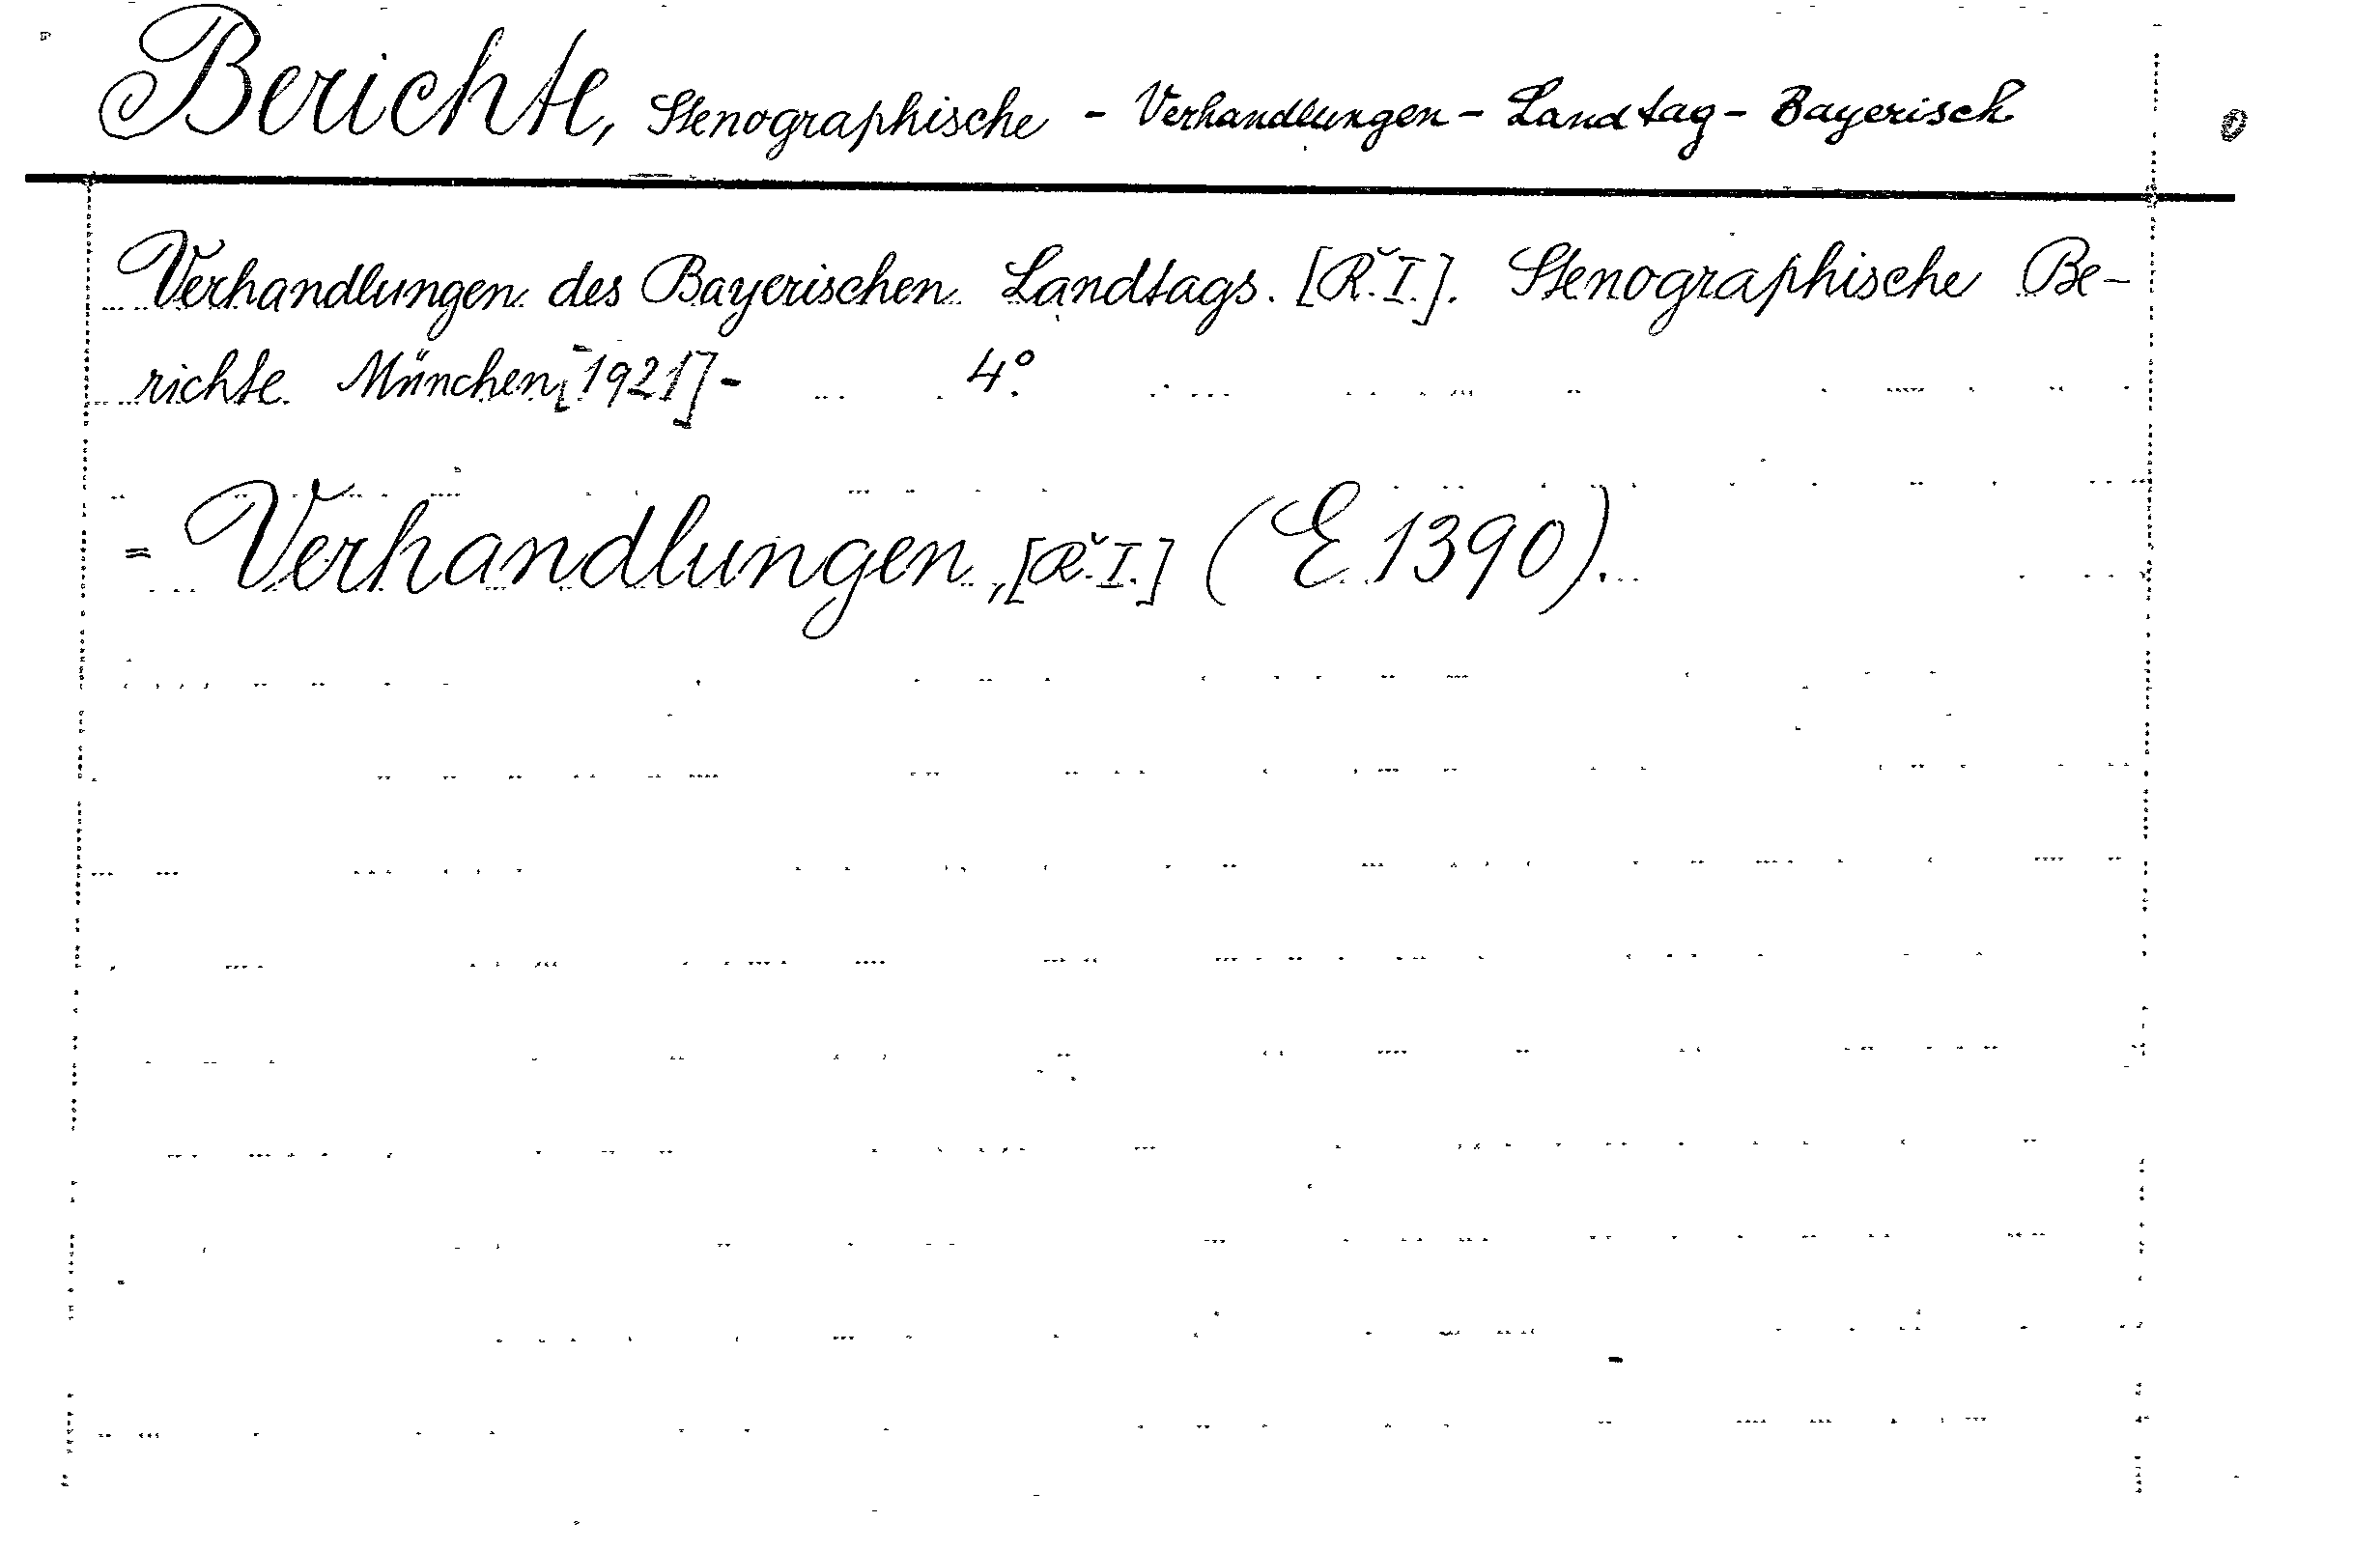 Berichte, Stenographische - Verhandlungen - Landtag - Bayerisch
Verhandlungen des Bayerischen Landtags. [R. I.]. Stenographische Be-
richte. München, [1921] - 4°.
= Verhandlungen, [R. I.] (E. 1390).